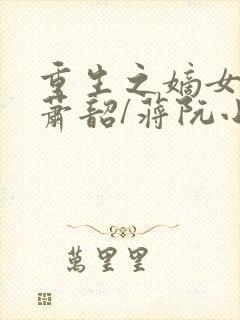 重生之嫡女
萧韶/蒋阮小
萬里里